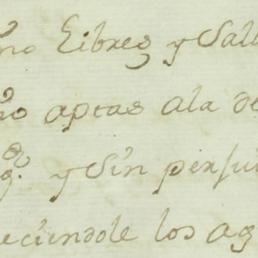 mo Libres y Salu
mo aptas ala de
q.e y Sin perjui
eciendole los ag